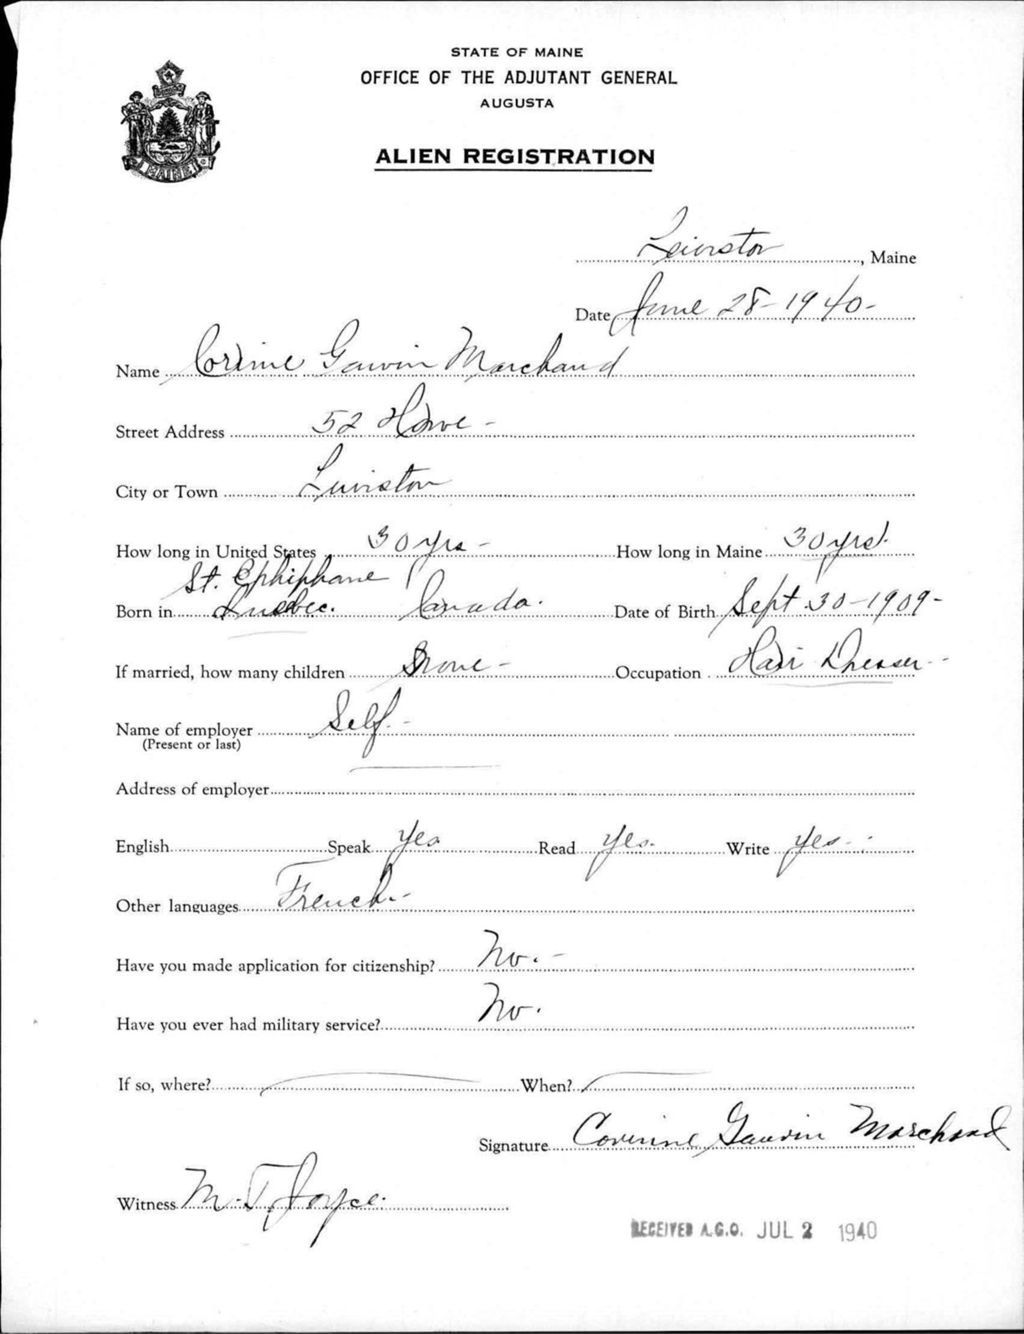 STATE OF MAINE
OFFICE OF THE ADJUTANT GENERAL
AUGUSTA
ALIEN REGISTRATION
Lewiston, Maine
Date June 28-1940-
Name Corinne Gauvin Marchand
Street Address 52 Howe -
City or Town Lewiston
How long in United States 30 yrs - How long in Maine 30 yrs.
St. Ephiphane
Born in Quebec. Canada. Date of Birth Sept. 30-1909-
If married, how many children None - Occupation Hair Dresser -
Name of employer Self. -
(Present or last)
Address of employer
English Speak Yes Read Yes. Write Yes -
Other languages French. -
Have you made application for citizenship? No. -
Have you ever had military service? No.
If so, where? When?
Signature Corinne Gauvin Marchand
Witness M. T. Joyce.
RECEIVED A.G.O. JUL 2 1940